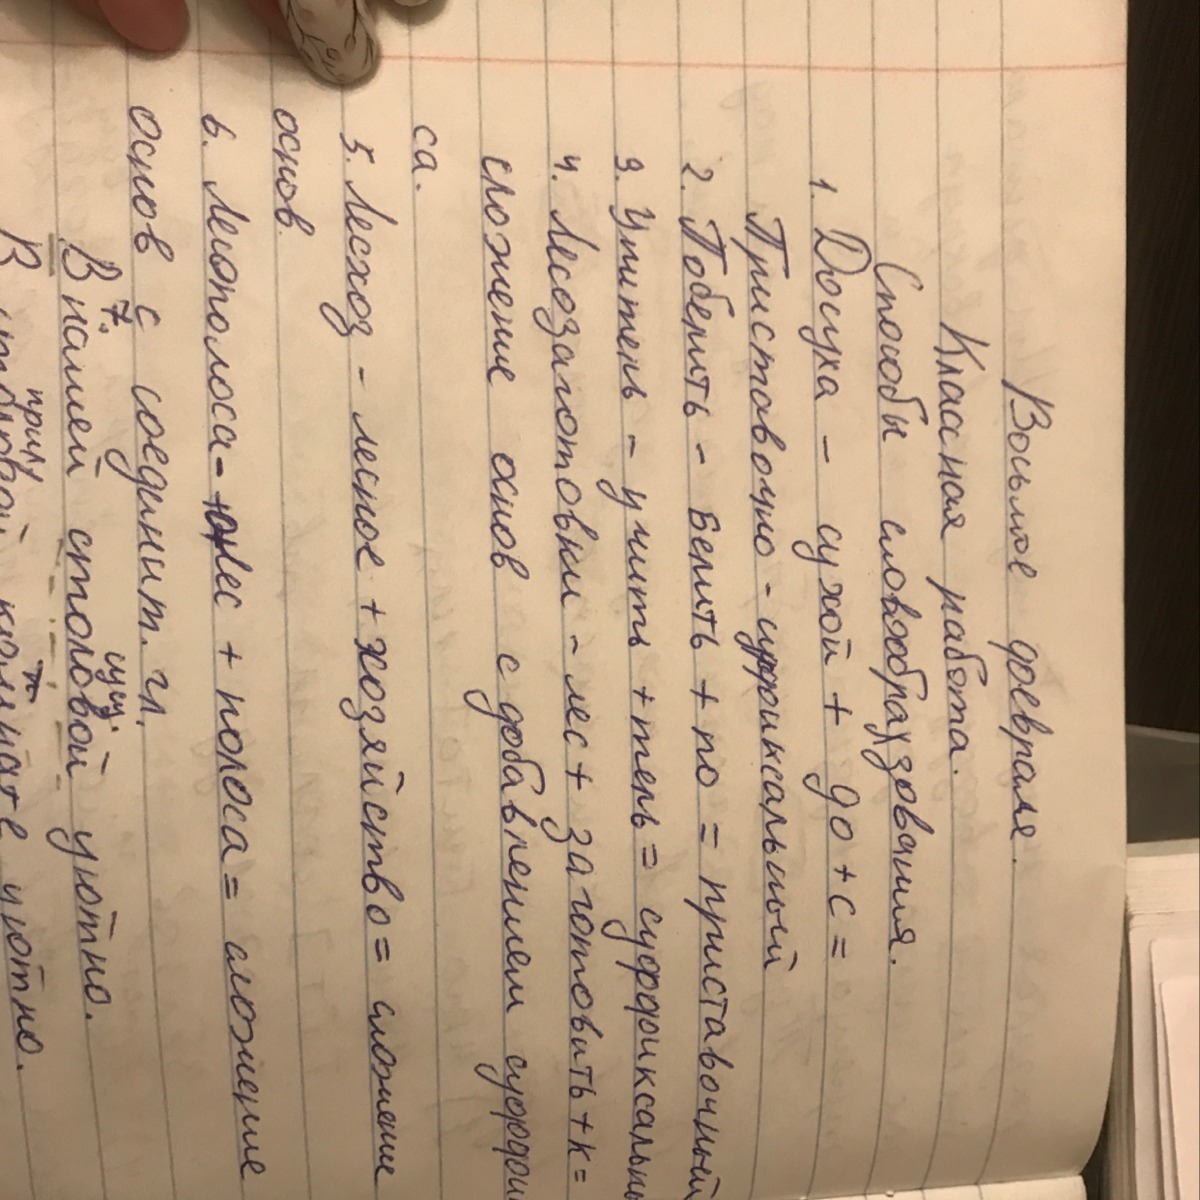 Восьмое февраля.
Классная работа.
Способы словообразования.
1. Досуха - сухой + до + с =
Приставочно - суффиксальный
2. Побелить - белить + по = приставочный
3. Учитель - учить + тель = суффиксальны
4. Лесозаготовки - лес + заготовить + к =
сложение основ с добавлением суффик
са.
5. Лесхоз - лесное + хозяйство = сложение
основ.
6. Лесополоса - лес + полоса = сложение
основ с соединит. гл.
7. сущ.
В нашей столовой уютно.
прил.
В столовой комнате уютно.